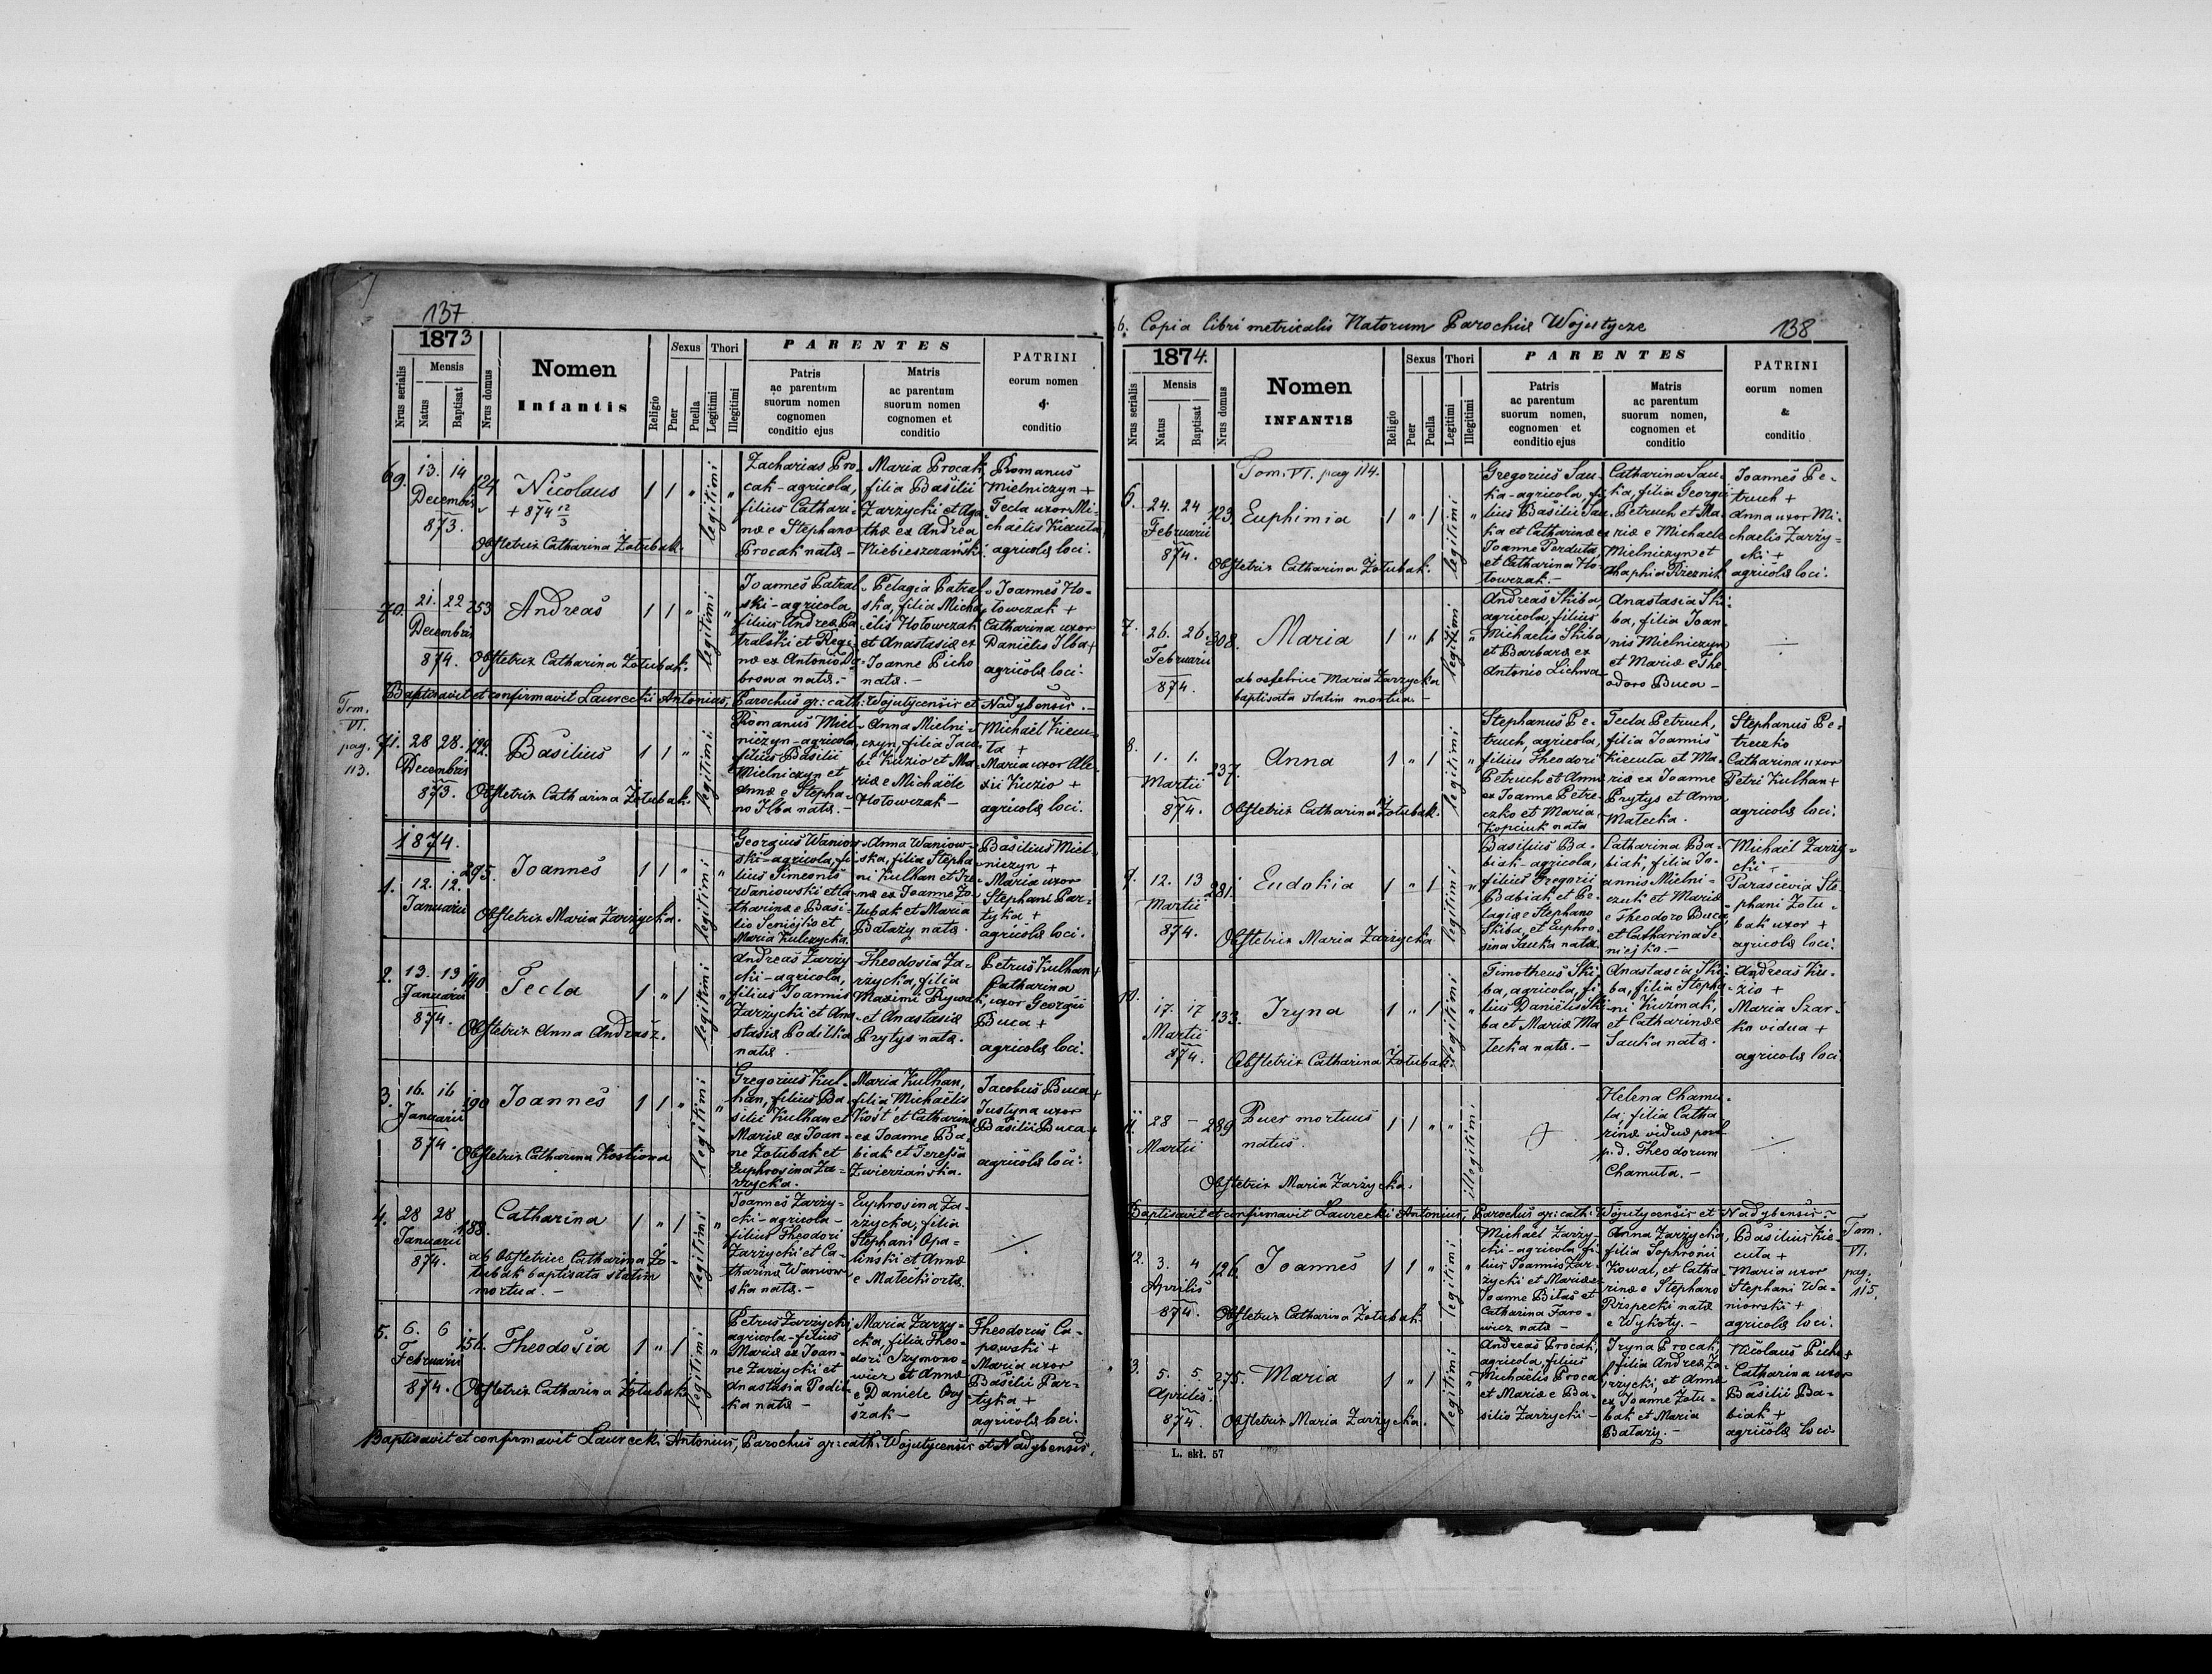 137
1873
Nrus serialis
Mensis
Natus
Baptisat
Nrus domus
Nomen
Infantis
Religio
Sexus
Puer
Puella
Thori
Legitimi
Illegitimi
PARENTES
Patris
ac parentum
suorum nomen
cognomen
conditio ejus
Matris
ac parentum
suorum nomen
cognomen et
conditio
PATRINI
eorum nomen
&
conditio
69. 13. 14 124
Decembris
873.
Nicolaus
+ 874 12/3
Obstetrix Catharina Żołubak.
1 1 „ legitimi „
Zacharias Pro-
cak - agricola,
filius Cathari-
næ e Stephano
Procak natæ -
Maria Procak,
filia Basilii
Zarzycki et Aga-
thæ ex Andrea
Niebieszczański.
Romanus
Mielniczyn +
Tecla uxor Mi-
chaelis Kicuta
agricolæ loci.
70. 21. 22 253
Decembris
874.
Andreas
Obstetrix Catharina Żołubak.
1 1 „ legitimi „
Joannes Patral-
ski - agricola,
filius Andreæ Pa-
tralski et Regi-
næ ex Antonio Do-
browa natæ. -
Pelagia Patral-
ska, filia Micha-
ëlis Hołowczak
et Anastasiæ ex
Joanne Picho
natæ. -
Joannes Ho-
łowczak +
Catharina uxor
Daniëlis Ilba +
agricolæ loci.
Baptisavit et confirmavit Laurecki Antonius, Parochus gr: cath: Wojutycensis et Nadybensis. -
Tom.
VI.
pag.
113.
71. 28 28. 199.
Decembris
873.
Basilius
Obstetrix Catharina Żołubak.
1 1 „ legitimi
Romanus Miel-
niczyn - agricola
filius Basilii
Mielniczyn et
Annæ e Stepha-
no Ilba natæ. -
Anna Mielni-
czyn, filia Jaco-
bi Kuzio et Ma-
riæ e Michaële
Hołowczak -
Michaël Kicu-
ta +
Maria uxor Ale-
xii Kuzio +
agricolæ loci.
1874.
1. 12. 12. 295.
Januarii
Joannes
Obstetrix Maria Zarzycka.
1 1 „ legitimi „
Georgius Waniow-
ski - agricola, fi-
lius Simeonis
Waniowski et Ca-
tharinæ e Basi-
lio Seniejko et
Maria Kulczycka.
Anna Waniow-
ska, filia Stepha-
ni Kulhan et Ire-
næ ex Joanne Żo-
łubak et Maria
Batazy natæ.
Basilius Miel-
niczyn +
Maria uxor
Stephani Par-
tyka +
agricolæ loci.
2. 13. 13 140
Januarii
874.
Tecla
Obstetrix Anna Andrasz.
1 „ 1 legitimi „
Andreas Zarzy-
cki - agricola,
filius Joannis
Zarzycki et Ana-
stasiæ Podilska
natæ.
Theodosia Za-
rzycka, filia
Maximi Rywak,
et Anastasiæ
Prytys natæ.
Petrus Kulhan +
Catharina
uxor Georgii
Buca +
agricolæ loci.
3. 16. 16 190
Januarii
874.
Joannes
Obstetrix Catharina Kostiowa
1 1 „ legitimi „
Gregorius Kul-
han, filius Ba-
silii Kulhan et
Mariæ ex Joan-
ne Żołubak et
Euphrosina Za-
rzycka.
Maria Kulhan,
filia Michaëlis
Kost et Catharinæ
ex Joanne Ba-
biak et Teressa
Zwierzańska.
Jacobus Buca +
Justyna uxor
Basilii Buca +
agricolæ loci.
4. 28 28 188.
Januarii
874.
Catharina
ab Obstetrice Catharina Żo-
łubak baptisata statim
mortua. -
1 „ 1 legitimi „
Joannes Zarzy-
cki - agricola -
filius Theodori
Zarzycki et Ca-
tharinæ Waniow-
ska natæ. -
Euphrosina Za-
rzycka, filia
Stephani Opa-
liński et Annæ
e Mateckiorta.
5. 6. 6 156.
Februarii
874.
Theodosia
Obstetrix Catharina Żołubak
1 „ 1 legitimi „
Petrus Zarzycki,
agricola - filius
Mariæ ex Joan-
ne Zarzycki et
Anastasia Podil-
ka natæ -
Maria Zarzy-
cka, filia Theo-
dori Szymono-
wicz et Annæ
e Daniele Ory-
szak -
Theodorus Ca-
powski +
Maria uxor
Basilii Par-
tyka +
agricolæ loci.
Baptisavit et confirmavit Laurecki Antonius, Parochus gr: cath: Wojutycensis et Nadybensis.
6. Copia libri metricalis Natorum Parochiæ Wojutycze
138
1874.
Nrus serialis
Mensis
Natus
Baptisat
Nrus domus
Nomen
INFANTIS
Religio
Sexus
Puer
Puella
Thori
Legitimi
Illegitimi
PARENTES
Patris
ac parentum
suorum nomen,
cognomen et
conditio ejus
Matris
ac parentum
suorum nomen,
cognomen et
conditio
PATRINI
eorum nomen
&
conditio
Tom. VI. pag 114.
6. 24. 24 123.
Februarii
874.
Euphimia
Obstetrix Catharina Żołubak.
1 „ 1 legitimi „
Gregorius Sau-
ka - agricola, fi-
lius Basilii Sau-
ka et Catharinæ ex
Joanne Perduta,
et Catharina Ho-
łowczak. -
Catharina Sau-
ka, filia Georgii
Petruch et Ma-
riæ e Michaele
Mielniczyn et
Thaphia Rzeznik
Joannes Pe-
truch +
Anna uxor Mi-
chaelis Zarzy-
cki +
agricolæ loci.
7. 26. 26 308.
Februarii
874.
Maria
ab ostetrice Maria Zarzycka
baptisata statim mortua. -
1 „ 1 legitimi „
Andreas Skiba,
agricola, filius
Michaelis Skiba
et Barbaræ ex
Antonio Lichwa
Anastasia Ski-
ba, filia Joan-
nis Mielniczyn
et Mariæ e The-
odoro Buca -
8. 1. 1. 237.
Martii
874.
Anna
Obstetrix Catharina Żołubak.
1 „ 1 legitimi „
Stephanus Pe-
truch, agricola,
filius Theodori
Petruch et Annæ
ex Joanne Petre-
czko et Maria
Kopciuk nata
Tecla Petruch,
filia Joannis
Kicuta et Ma-
riæ ex Joanne
Prytys et Anna
Matecka.
Stephanus Pe-
treczko
Catharina uxor
Petri Kulhan +
agricolæ loci.
9. 12. 13 281.
Martii
874.
Eudokia
Obstetrix Maria Zarzycka
1 „ 1 legitimi „
Basilius Ba-
biak - agricola,
filius Gregorii
Babiak et Pe-
lagiæ e Stephano
Skiba, et Euphro-
sina Sauka natæ.
Catharina Ba-
biak, filia Jo-
annis Mielni-
czuk et Mariæ
e Theodoro Buca
et Catharina Se-
niejko. -
Michaël Zarzy-
cki +
Parascevia Ste-
phani Żołu-
bak uxor +
agricolæ loci.
10. 17. 17 133.
Martii
874.
Iryna
Obstetrix Catharina Żołubak.
1 „ 1 legitimi „
Timotheus Ski-
ba, agricola, fi-
lius Daniëlis Ski-
ba et Mariæ Ma-
tecka natæ. -
Anastasia Ski-
ba, filia Stepha-
ni Kuźmak,
et Catharinæ
Sauka natæ.
Andreas Ku-
zio +
Maria Szar-
ko vidua +
agricolæ loci
11. 28 - 289
Martii
Puer mortuus
natus.
Obstetrix Maria Zarzycka.
1 1 „ „ illegitimi
Helena Chamu-
ta; filia Catha-
rinæ viduæ post
p. d. Theodorum
Chamuta. -
Baptisavit et confirmavit Laurecki Antonius, Parochus gr: cath: Wojutycensis et Nadybensis. -
Tom.
VI.
pag.
115.
12. 3. 4 126.
Aprilis
874.
Joannes
Obstetrix Catharina Żołubak
1 1 „ legitimi „
Michaël Zarzy-
cki - agricola, fi-
lius Joannis Zar-
zycki et Mariæ ex
Joanne Bilas et
Catharina Jaro-
wicz natæ -
Anna Zarzycka,
filia Sophronii
Kowal, et Catha-
rinæ e Stephano
Rzspecki natæ
e Wykoty. -
Basilius Kic-
cuta +
Maria uxor
Stephani Wa-
niowski +
agricolæ loci.
13. 5. 5. 275.
Aprilis.
874.
Maria
Obstetrix Maria Zarzycka.
1 „ 1 legitimi „
Andreas Procak,
agricola, filius
Michaëlis Procak
et Mariæ e Ba-
silio Zarzycki -
Iryna Procak,
filia Andreæ Za-
rzycki, et Annæ
ex Joanne Żołu-
bak et Maria
Batazy. -
Nicolaus Picho +
Catharina uxor
Basilii Ba-
biak +
agricolæ loci.
L. skł. 57